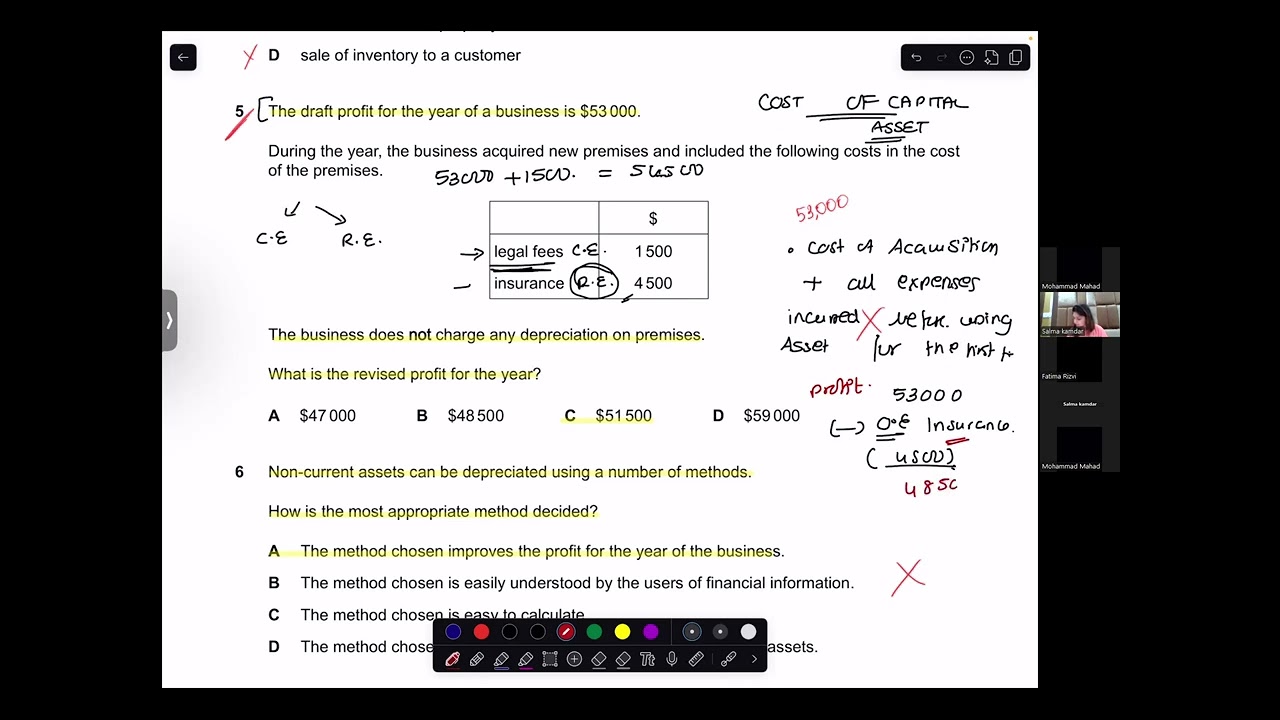 D sale of inventory to a customer
5 The draft profit for the year of a business is $53 000.
COST OF CAPITAL
ASSET
During the year, the business acquired new premises and included the following costs in the cost
of the premises.
53000 + 1500. = 54500
C.E R.E.
$
legal fees C.E. 1 500
insurance R.E. 4 500
53,000
• Cost of Acquisition
+ all expenses
incurred before using
Asset for the first
The business does not charge any depreciation on premises.
What is the revised profit for the year?
A $47 000 B $48 500 C $51 500 D $59 000
profit. 53000
(—) O.E Insurance.
(4500)
4850
6 Non-current assets can be depreciated using a number of methods.
How is the most appropriate method decided?
A The method chosen improves the profit for the year of the business.
B The method chosen is easily understood by the users of financial information.
C The method chosen is easy to calculate
D The method chose assets.
Tt
Mohammad Mahad
Salma kamdar
Fatima Rizvi
Salma kamdar
Mohammad Mahad